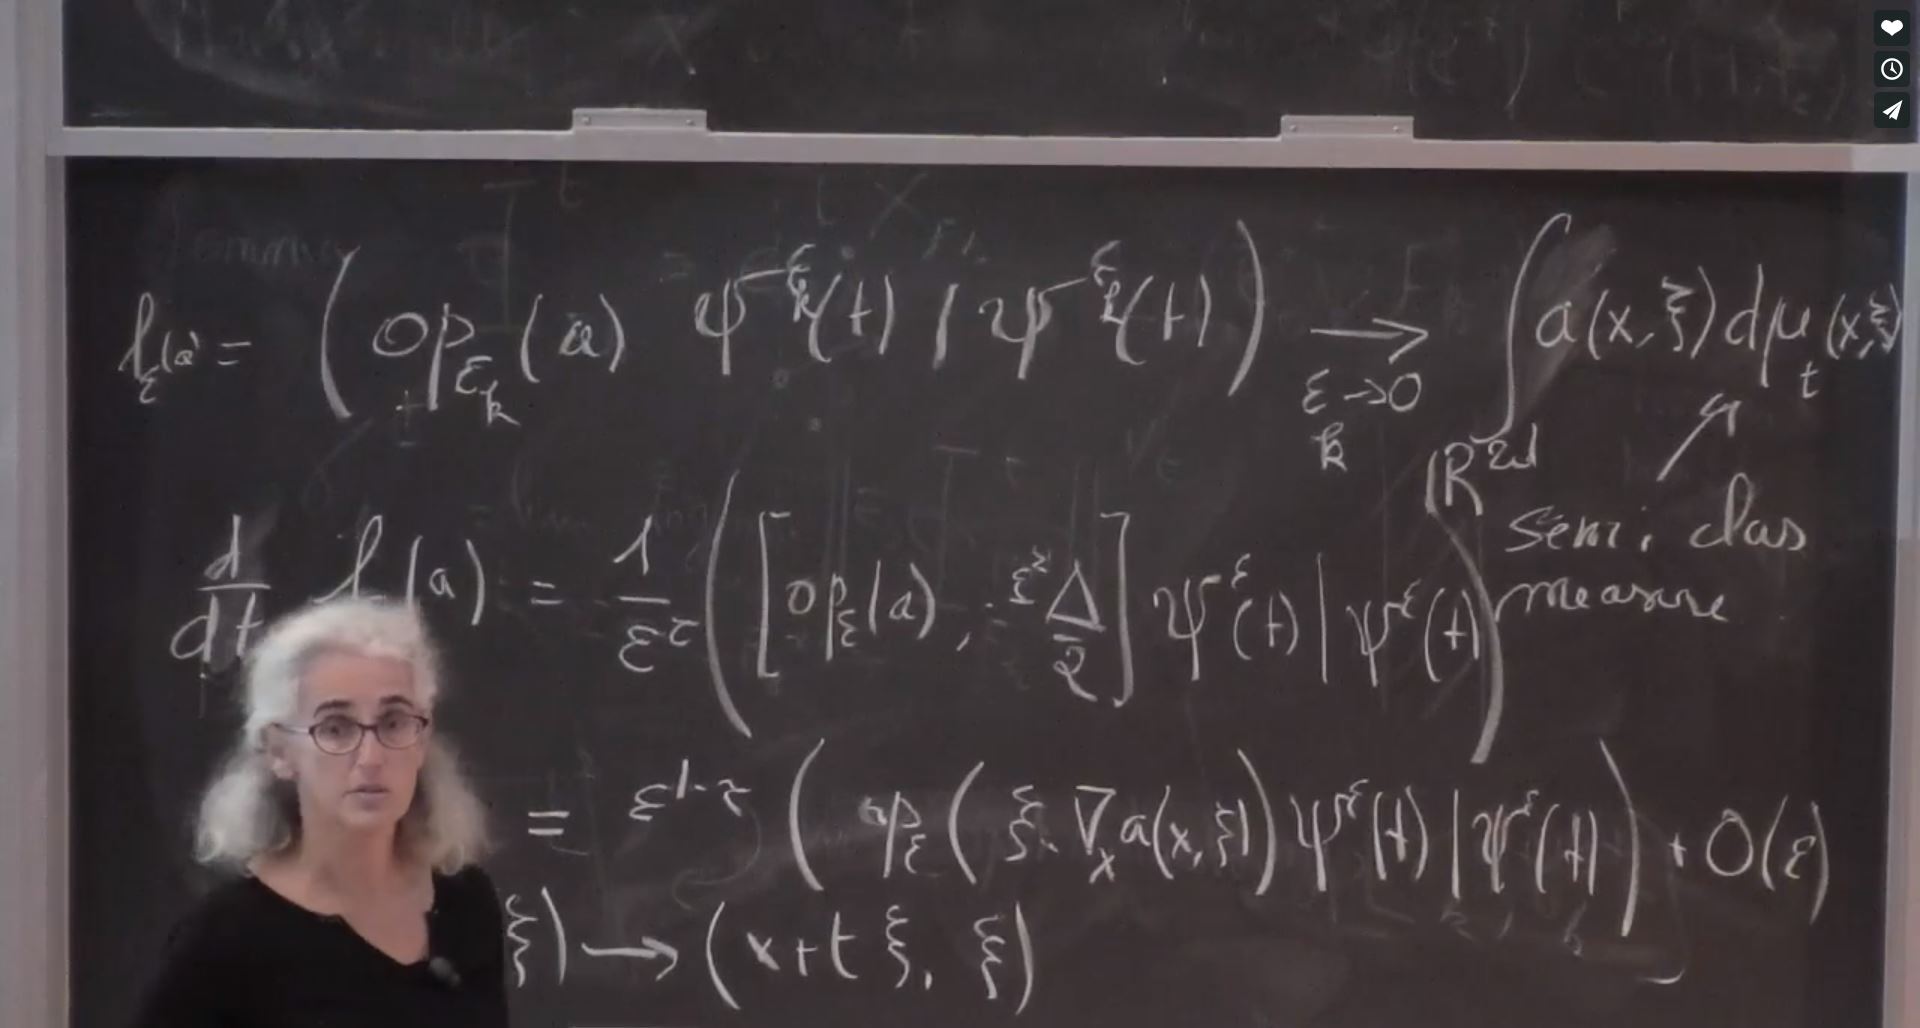 ℓ_ε(a) = ( op_{ε_k}(a) ψ^{ε_k}(t) / ψ^{ε_k}(t) ) ⟶_{ε_k → 0} ∫_{ℝ^{2d}} a(x, ξ) dμ_t(x, ξ)
semi. clas
measure
d/dt ℓ (a) = 1/ε^τ ( [ op_ε(a), - ε²Δ/2 ] ψ^ε(t) | ψ^ε(t) )
= ε^{1-τ} ( op_ε( ξ · ∇_x a(x, ξ) ) ψ^ε(t) | ψ^ε(t) ) + O(ε)
ξ) ⟶ (x + t ξ, ξ)